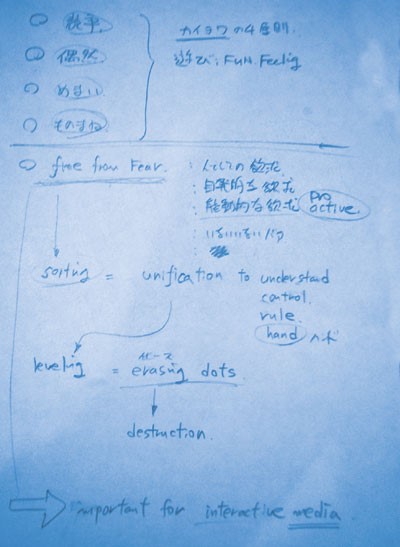 ○ 競争
○ 偶然
○ めまい
○ ものまね
カイヨワの4原則
遊び: FUN. Feeling
○ free from Fear.
: 人としての欲求
: 自発的な欲求
: 能動的な欲求 pro active.
: いないいないバァ
sorting = unification to understand
control.
rule.
hand
leveling = erasing dots
destruction.
⇒ important for interactive media.